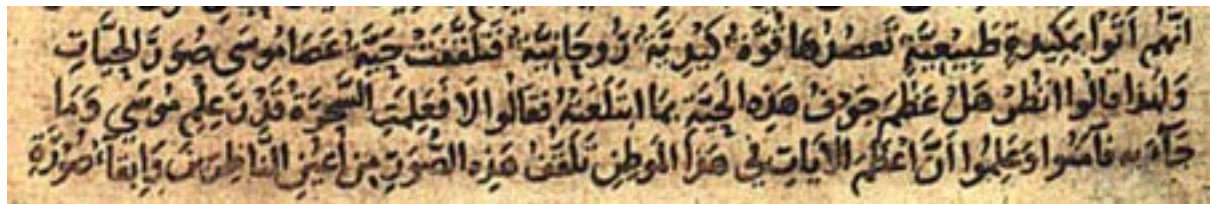 انّهم أتَوا بمكيدةٍ طَبِيعيَّةٍ تَعضُدُها قُوَّةٌ كَيْدِيَّةٌ رُوحَانِيَّةٌ فَتَلَقَّفَتْ حَيَّةُ عَصَا مُوسَى صُوَرَ الحيَّاتِ
وَلهَذا قالُوا انظُرْ هَلْ عَظُمَ جَوفُ هَذِهِ الحيَّةِ بمَا ابتَلَعَتْهُ فقَالُوا لَا فعَلِمَتِ السَّحَرَةُ قَدْرَ عِلْمِ مُوسَى وَمَا
جَآءَ بهِ فآمَنُوا وَعَلِمُوا أنَّ اعْظَمَ الآيَاتِ في هَذا المَوطِنِ تَلَقُّفُ هَذِهِ الصُّوَرِ مِنْ أعْيُنِ النَّاظِرِينَ وَإبقَآءُ صُورَةِ